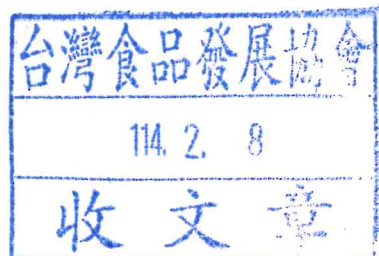 台灣食品發展協會
114. 2. 8
收文章